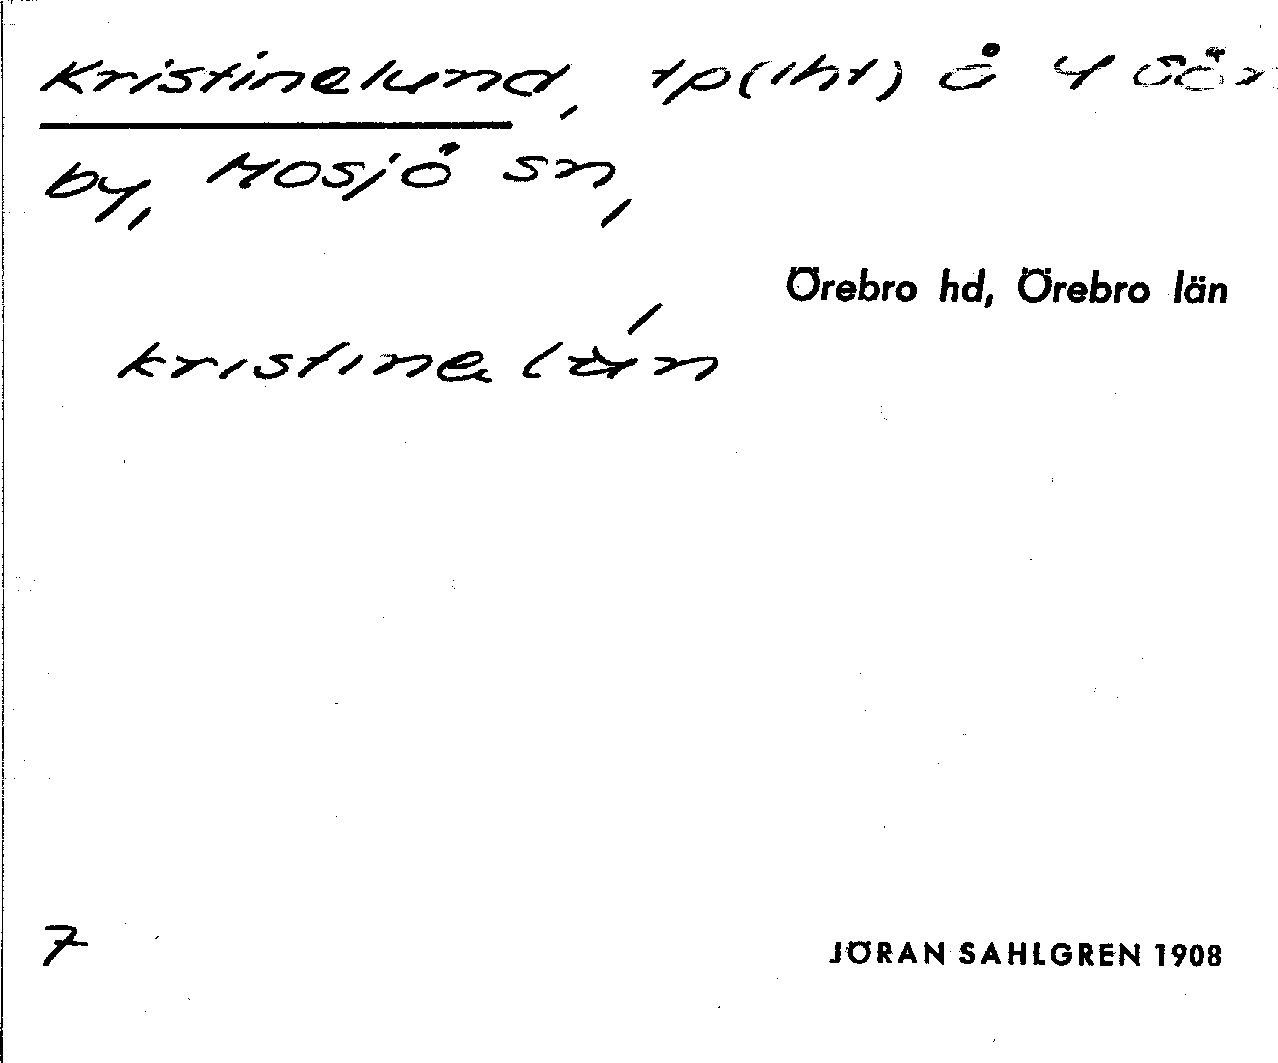 Kristinelund, tp(lht) å
by, Mosjö sn,
Örebro hd, Örebro län
kristinelún
7
JÖRAN SAHLGREN 1908